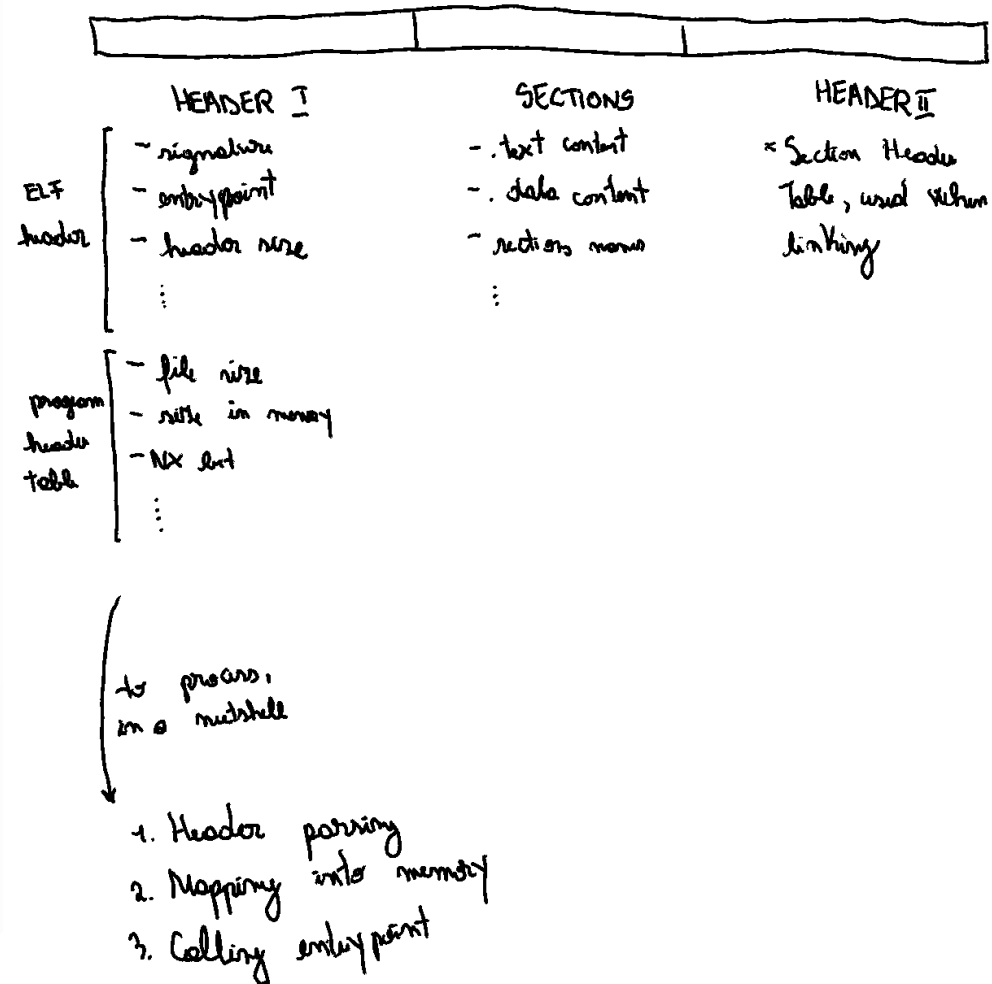 HEADER I
- signature
- entrypoint
- header size
⋮
ELF
header
- file size
- size in memory
- NX bit
⋮
program
header
table
SECTIONS
- .text content
- .data content
- sections names
⋮
HEADER II
* Section Header
Table, used when
linking
to process,
in a nutshell
1. Header parsing
2. Mapping into memory
3. Calling entrypoint